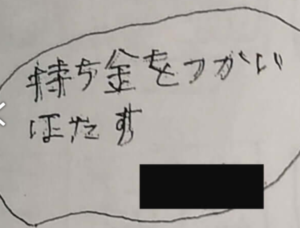 持ち金をつかい
はたす